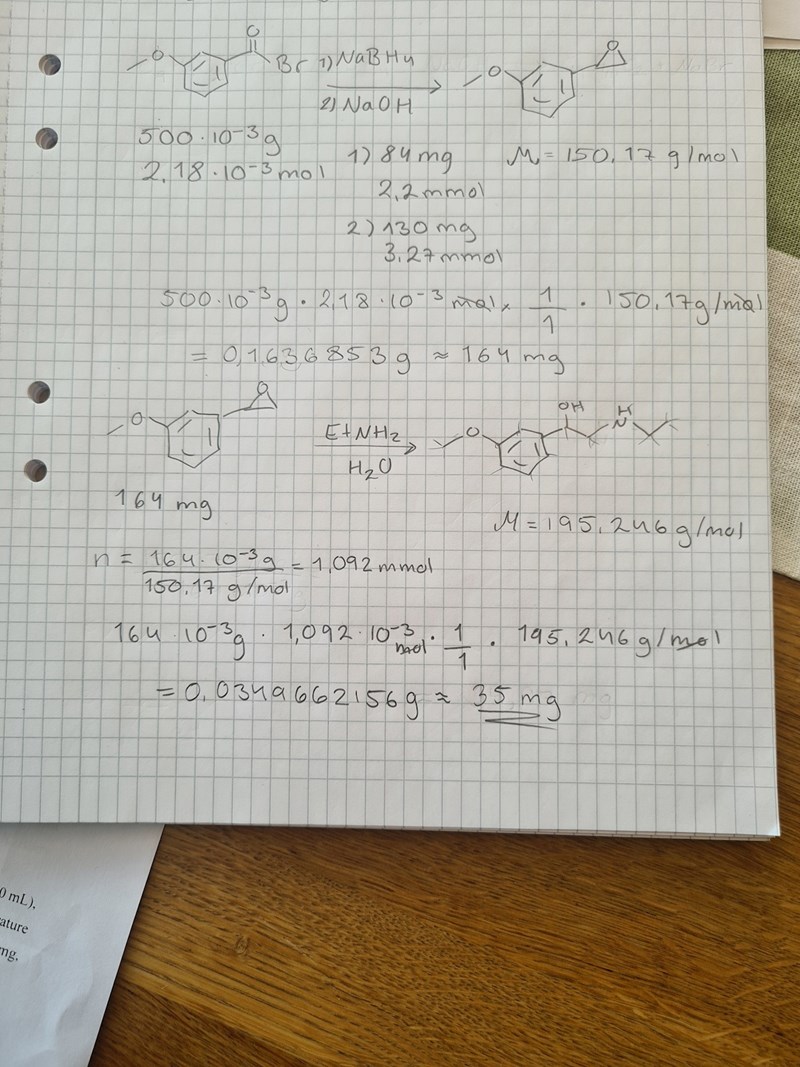 O
O
Br
1) NaBH4
2) NaOH
O
O
500·10⁻³g
2,18·10⁻³mol
1) 84 mg
2,2 mmol
2) 130 mg
3.27 mmol
M = 150,17 g/mol
500·10⁻³g · 2,18·10⁻³ mol · 1/1 · 150.17g/mol
= 0,1636853g ≈ 164 mg
O
O
EtNH2
H2O
O
OH
H
N
164 mg
M = 195.246 g/mol
n = 164·10⁻³g / 150.17 g/mol = 1,092 mmol
164·10⁻³g · 1,092·10⁻³ mol · 1/1 · 195.246 g/mol
= 0.0349662156g ≈ 35 mg
0 mL),
ature
mg,